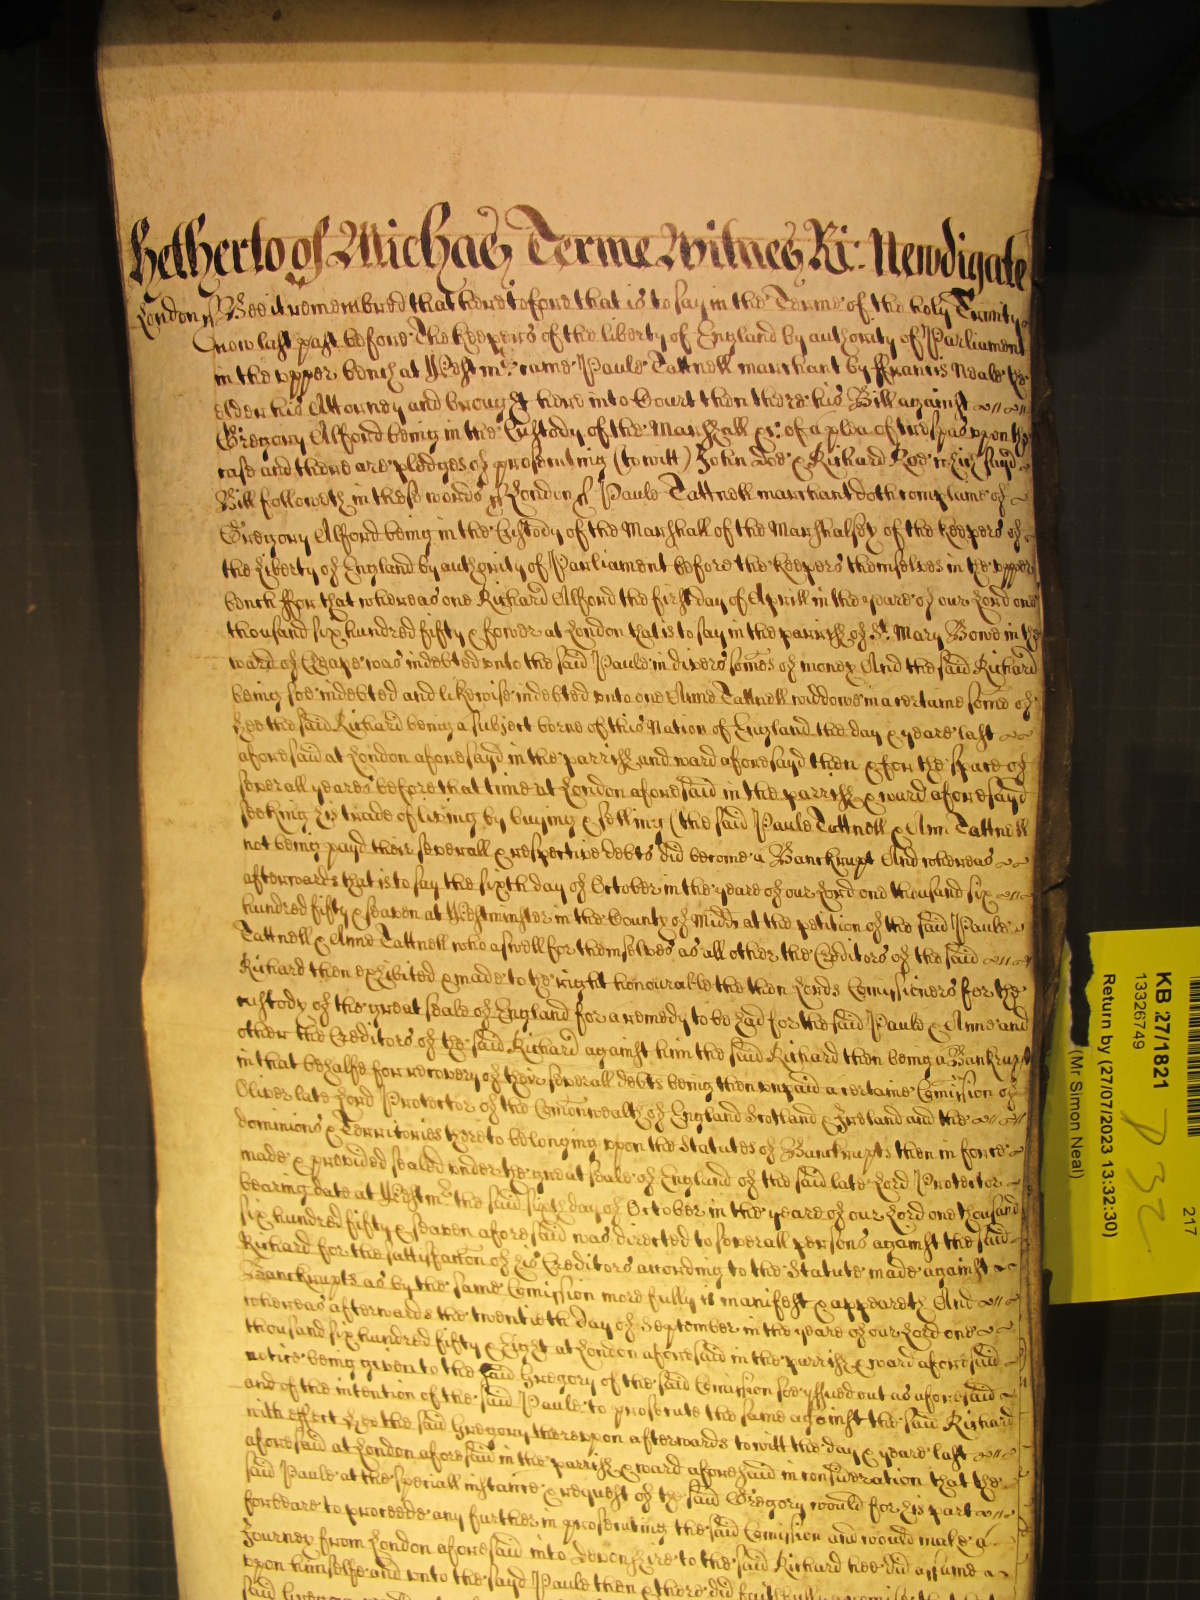 Hetherto of Michas Terme Witnes Ri: Newdigate
London ss Bee it remembred that heretofore that is to say in the Terme of the holy Trinity
now last past before The Keepers of the liberty of England by authority of Parliament
in the upper bench at Westmr: came Paule Tattnell marchant by ffrancis Neale the
elder his Attorney and brought here into Court then there his Bill against
Gregory Alford being in the Custody of the Marshall &c: of a plea of trespas upon the
case and there are pledges of prosecuting (to witt) John Doe & Richard Roe which sayd
Bill followeth in these words ss London ss Paule Tattnell marchant doth complaine of
Gregory Alford being in the Custody of the Marshall of the Marshalsey of the Keepers of
the Liberty of England by authority of Parliament before the Keepers themselves in the upper
bench ffor that whereas one Richard Alford the first day of Aprill in the yeare of our Lord one
thousand six hundred fifty & fower at London that is to say in the parrish of St. Mary Bowe in the
ward of Cheape was indebted unto the said Paule in divers somes of money And the said Richard
being soe indebted and likewise indebted unto one Anne Tattnell widdowe in a certaine some of
hee the said Richard being a subject borne of this Nation of England the day & yeare last
aforesaid at London aforesayd in the parrish and ward aforesayd then & for the space of
severall yeares before that time at London aforesaid in the parrish & ward aforesayd
seeking his trade of living by buying & selling (the said Paule Tattnell & Ann Tattnell
not being payd their severall & respective debts did become a Banckrupt And whereas
afterwards that is to say the sixth day of October in the yeare of our Lord one thousand six
hundred fifty & seaven at Westminster in the County of Midd at the petition of the said Paule
Tattnell & Anne Tattnell who aswell for themselves as all other the Creditors of the said
Richard then exhibited & made to the right honourable the then Lords Comissioners for the
custody of the great seale of England for a remedy to be had for the said Paule & Anne and
other the Creditors of the said Richard against him the said Richard then being a Bankrupt
in that behalfe for recovery of their severall debts being then unpaid a certaine Comission of
Oliver late Lord Protector of the Comonwealth of England Scotland & Ireland and the
dominions & Territories thereto belonging upon the Statutes of Banckrupts then in force
made & provided sealed under the great seale of England of the said late Lord Protector
bearing date at Westmr: the said sixth day of October in the yeare of our Lord one thousand
six hundred fifty & seaven aforesaid was directed to severall persons against the said
Richard for the sattisfaccon of his Creditors according to the Statute made against
Banckrupts as by the same Comission more fully is manifest & appeareth And
whereas afterwards the twentieth day of September in the yeare of our Lord one
thousand six hundred fifty & Eight at London aforesaid in the parrish & ward aforesaid
notice being given to the said Gregory of the said Comission soe yssued out as aforesaid
and of the intention of the said Paule to prosecute the same against the said Richard
with effect hee the said Gregory thereupon afterwards to witt the day & yeare last
aforesaid at London aforesaid in the parrish & ward aforesaid in consideration that the
said Paule at the speciall instance & request of the said Gregory would for his part
forbeare to proceede any further in prosecuting the said Comission and would make a
Journey from London aforesaid into Devonshire to the said Richard hee did assume
upon himselfe and unto the sayd Paule then & there did faithfully
KB 27/1821
13326749
Return by (27/07/2023 13:32:30)
(Mr Simon Neal)
217
P 32